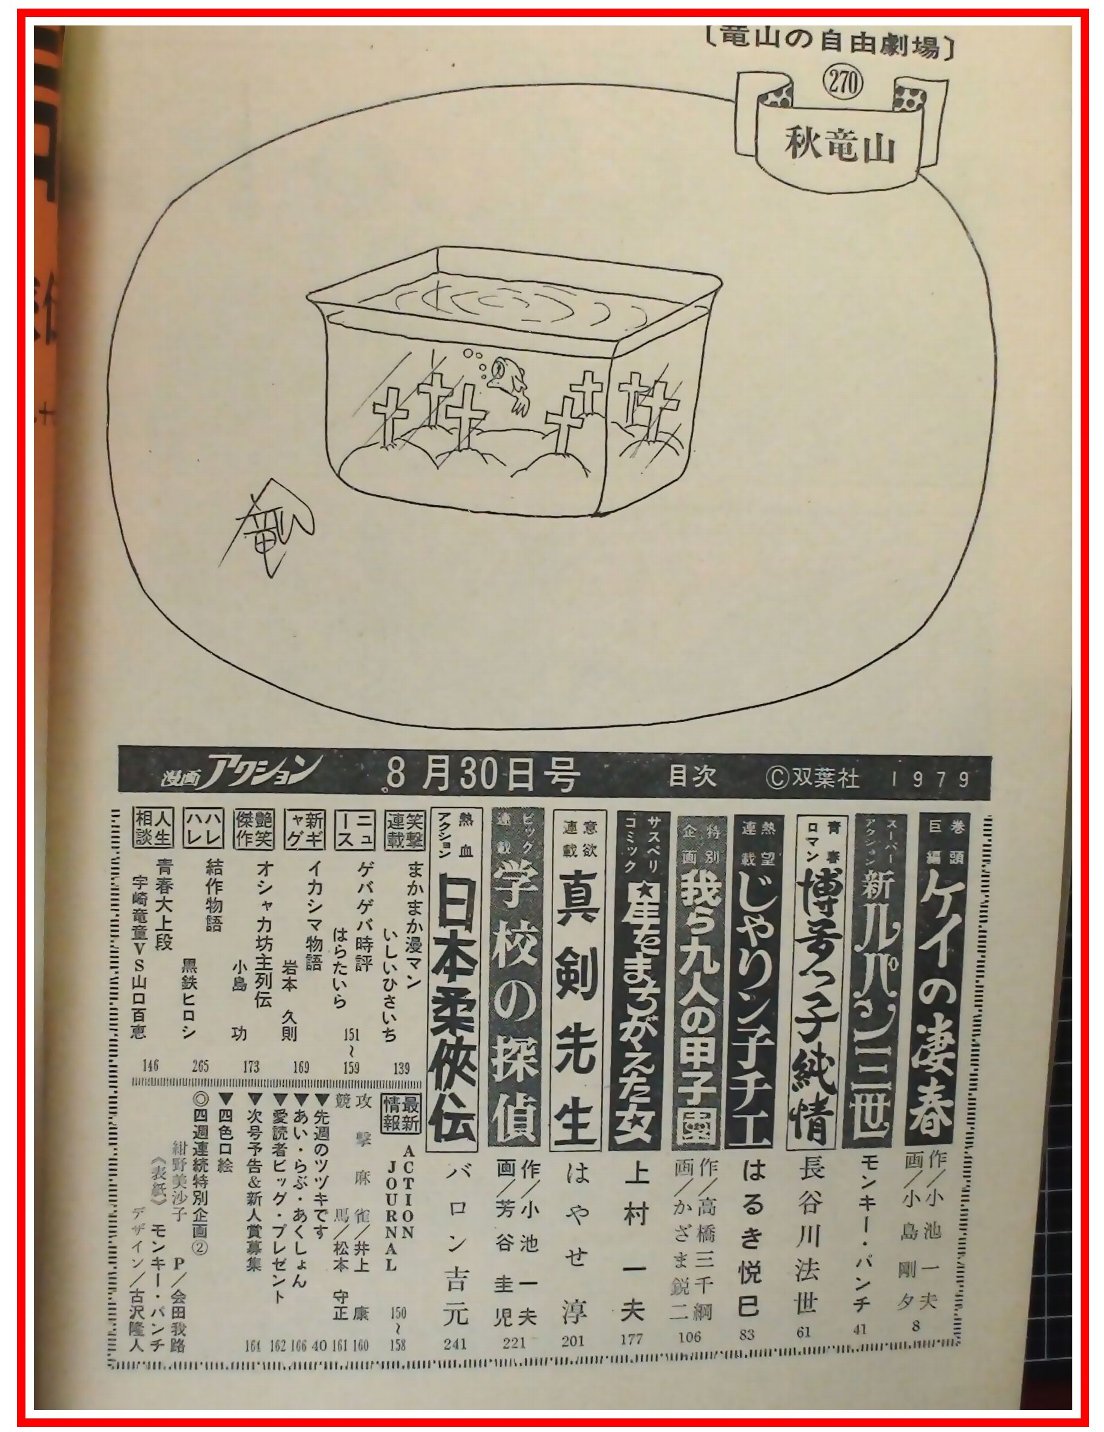 〔竜山の自由劇場〕
270
秋竜山
漫画アクション 8月30日号 目次 ©双葉社 1979
巻頭巨編 ケイの凄春 作/小池一夫 画/小島剛夕 8
スーパーアクション 新ルパン三世 モンキー・パンチ 41
青春ロマン 博多っ子純情 長谷川法世 61
熱望連載 じゃりン子チエ はるき悦巳 83
特別企画 我ら九人の甲子園 作/高橋三千綱 画/かざま鋭二 106
サスペリコミック ★星をまちがえた女★ 上村一夫 177
意欲連載 真剣先生 はやせ淳 201
ビッグ連載 学校の探偵 作/小池一夫 画/芳谷圭児 221
熱血アクション 日本柔侠伝 バロン吉元 241
笑撃連載 まかまか漫マン いしいひさいち 139
ニュース ゲバゲバ時評 はらたいら 151〜159
新ギャグ イカシマ物語 岩本久則 169
艶笑傑作 オシャカ坊主列伝 小島功 173
ハレハレ 結作物語 黒鉄ヒロシ 265
人生相談 青春大上段 宇崎竜童VS山口百恵 146
最新情報 ACTION JOURNAL 150〜158
攻撃麻雀/井上康 160
競馬/松本守正 161
▼先週のツヅキです 40
▼あい・らぶ・あくしょん 166
▼愛読者ビッグ・プレゼント 162
▼次号予告&新人賞募集 164
▼四色口絵
◎四週連続特別企画②
紺野美沙子 P/会田我路
《表紙》 モンキー・パンチ
デザイン/古沢隆人